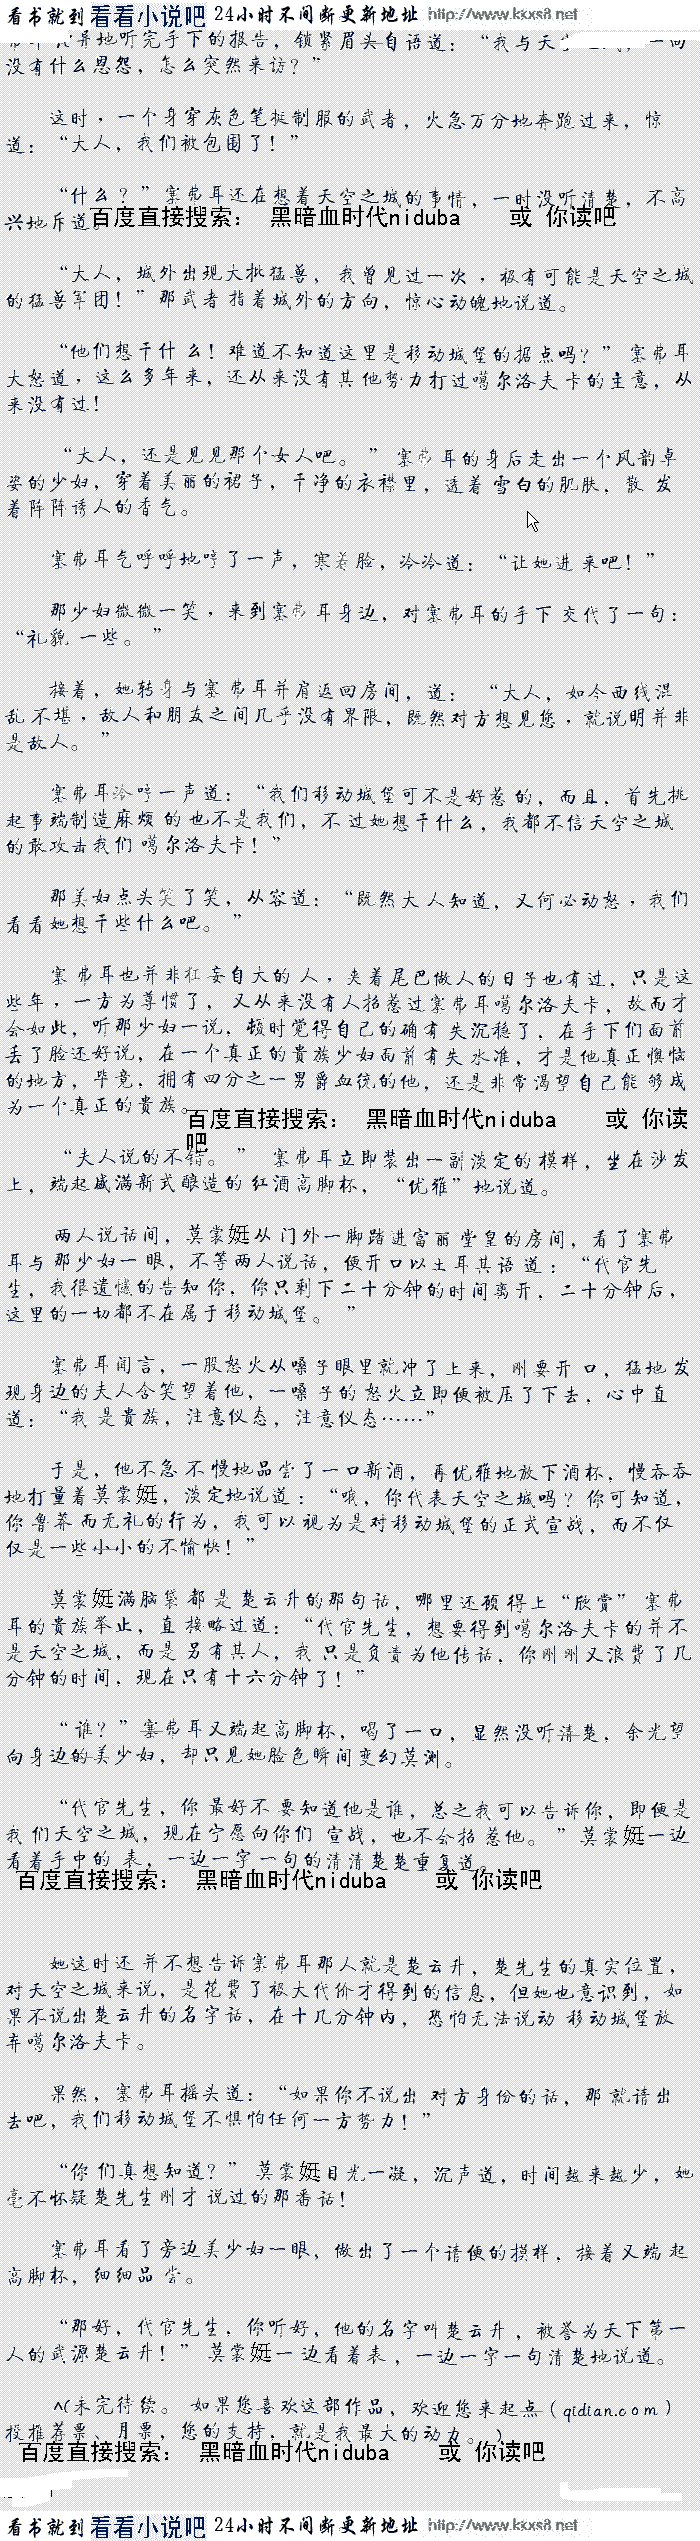 看书就到 看看小说吧 24小时不间断更新地址 http://www.kkxs8.net
异地听完手下的报告，锁紧眉头自语道：“我与天
没有什么恩怨，怎么突然来访？”
这时，一个身穿灰色笔挺制服的武者，火急万分地奔跑过来，惊
道：“大人，我们被包围了！”
“什么？”塞弗耳还在想着天空之城的事情，一时没听清楚，不高
兴地斥道。
百度直接搜索： 黑暗血时代niduba 或 你读吧
“大人，城外出现大批猛兽，我曾见过一次，极有可能是天空之城
的猛兽军团！”那武者指着城外的方向，惊心动魄地说道。
“他们想干什么！难道不知道这里是移动城堡的据点吗？”塞弗耳
大怒道，这么多年来，还从来没有其他势力打过噶尔洛夫卡的主意，从
来没有过！
“大人，还是见见那个女人吧。”塞弗耳的身后走出一个风韵卓
姿的少妇，穿着美丽的裙子，干净的衣襟里，透着雪白的肌肤，散发
着阵阵诱人的香气。
塞弗耳气呼呼地哼了一声，寒着脸，冷冷道：“让她进来吧！”
那少妇微微一笑，来到塞弗耳身边，对塞弗耳的手下交代了一句：
“礼貌一些。”
接着，她转身与塞弗耳并肩返回房间，道：“大人，如今西线混
乱不堪，敌人和朋友之间几乎没有界限，既然对方想见您，就说明并非
是敌人。”
塞弗耳冷哼一声道：“我们移动城堡可不是好惹的，而且，首先挑
起事端制造麻烦的也不是我们，不过她想干什么，我都不信天空之城
的敢攻击我们噶尔洛夫卡！”
那美妇点头笑了笑，从容道：“既然大人知道，又何必动怒，我们
看看她想干些什么吧。”
塞弗耳也并非狂妄自大的人，夹着尾巴做人的日子也有过，只是这
些年，一方为尊惯了，又从来没有人招惹过塞弗耳噶尔洛夫卡，故而才
会如此，听那少妇一说，顿时觉得自己的确有失沉稳了，在手下们面前
丢了脸还好说，在一个真正的贵族少妇面前有失水准，才是他真正懊恼
的地方，毕竟，拥有四分之一男爵血统的他，还是非常渴望自己能够成
为一个真正的贵族。
百度直接搜索： 黑暗血时代niduba 或 你读
吧
“夫人说的不错。”塞弗耳立即装出一副淡定的模样，坐在沙发
上，端起盛满新式酿造的红酒高脚杯，“优雅”地说道。
两人说话间，莫裳娗从门外一脚踏进富丽堂皇的房间，看了塞弗
耳与那少妇一眼，不等两人说话，便开口以土耳其语道：“代官先
生，我很遗憾的告知你，你只剩下二十分钟的时间离开，二十分钟后，
这里的一切都不在属于移动城堡。”
塞弗耳闻言，一股怒火从嗓子眼里就冲了上来，刚要开口，猛地发
现身边的夫人含笑望着他，一嗓子的怒火立即便被压了下去，心中直
道：“我是贵族，注意仪态，注意仪态……”
于是，他不急不慢地品尝了一口新酒，再优雅地放下酒杯，慢吞吞
地打量着莫裳娗，淡定地说道：“哦，你代表天空之城吗？你可知道，
你鲁莽而无礼的行为，我可以视为是对移动城堡的正式宣战，而不仅
仅是一些小小的不愉快！”
莫裳娗满脑袋都是楚云升的那句话，哪里还顾得上“欣赏”塞弗
耳的贵族举止，直接略过道：“代官先生，想要得到噶尔洛夫卡的并不
是天空之城，而是另有其人，我只是负责为他传话，你刚刚又浪费了几
分钟的时间，现在只有十六分钟了！”
“谁？”塞弗耳又端起高脚杯，喝了一口，显然没听清楚，余光望
向身边的美少妇，却只见她脸色瞬间变幻莫测。
“代官先生，你最好不要知道他是谁，总之我可以告诉你，即便是
我们天空之城，现在宁愿向你们宣战，也不会招惹他。”莫裳娗一边
看着手中的表，一边一字一句的清清楚楚重复道。
百度直接搜索： 黑暗血时代niduba 或 你读吧
她这时还并不想告诉塞弗耳那人就是楚云升，楚先生的真实位置，
对天空之城来说，是花费了极大代价才得到的信息，但她也意识到，如
果不说出楚云升的名字话，在十几分钟内，恐怕无法说动移动城堡放
弃噶尔洛夫卡。
果然，塞弗耳摇头道：“如果你不说出对方身份的话，那就请出
去吧，我们移动城堡不惧怕任何一方势力！”
“你们真想知道？”莫裳娗目光一凝，沉声道，时间越来越少，她
毫不怀疑楚先生刚才说过的那番话！
塞弗耳看了旁边美少妇一眼，做出了一个请便的模样，接着又端起
高脚杯，细细品尝。
“那好，代官先生，你听好，他的名字叫楚云升，被誉为天下第一
人的武源楚云升！”莫裳娗一边看着表，一边一字一句清楚地说道。
^(未完待续。如果您喜欢这部作品，欢迎您来起点（qidian.com）
投推荐票、月票，您的支持，就是我最大的动力。）
百度直接搜索： 黑暗血时代niduba 或 你读吧
看书就到 看看小说吧 24小时不间断更新地址 http://www.kkxs8.net